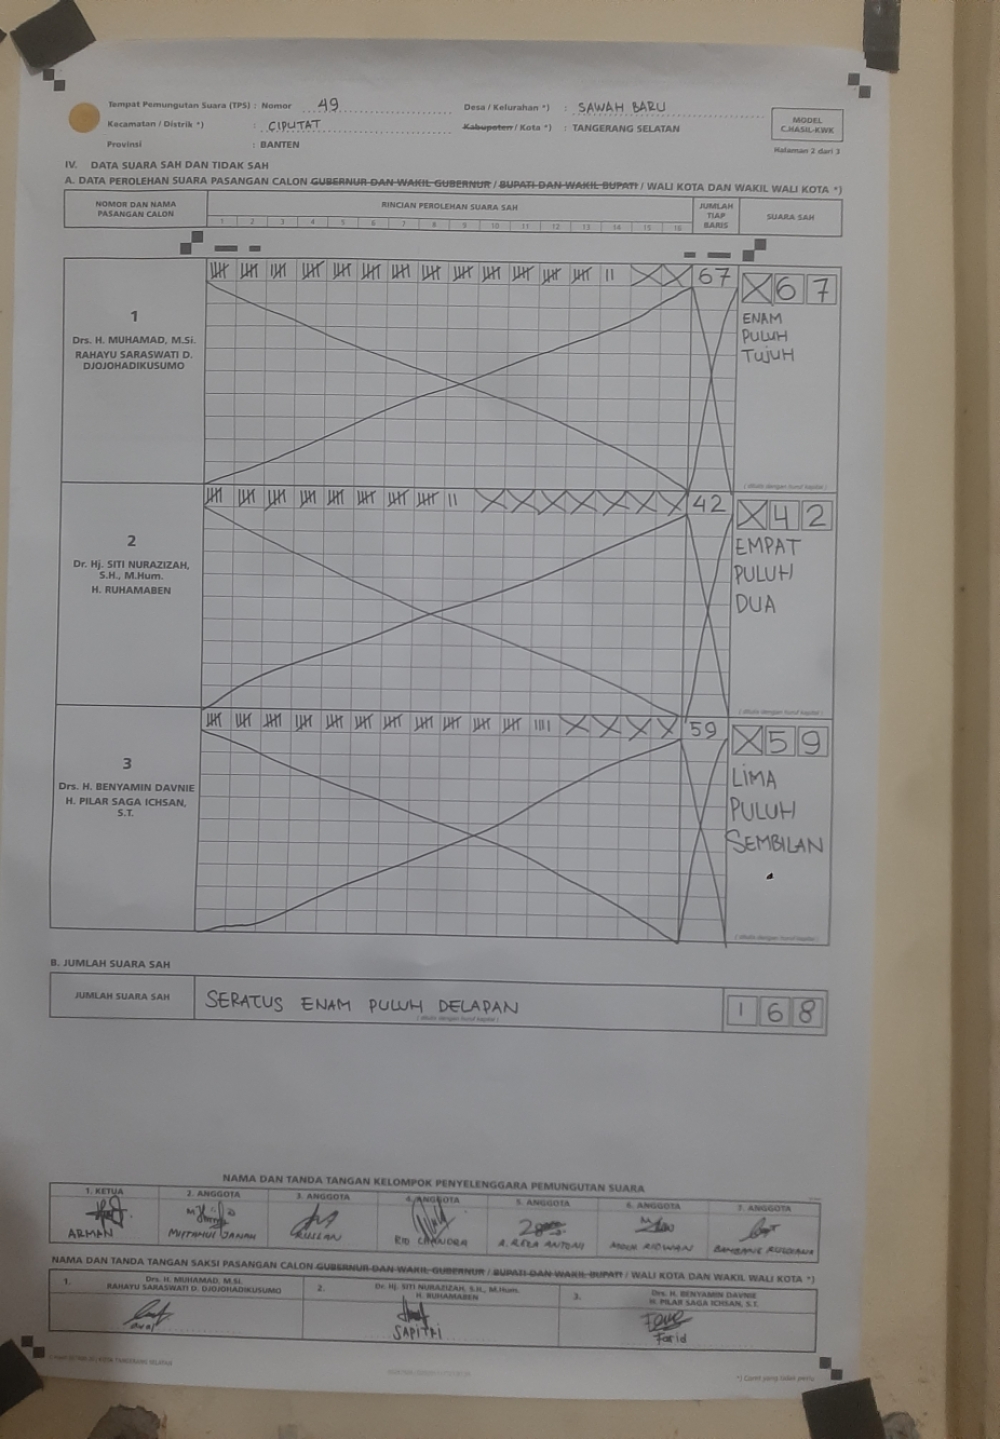 Tempat Pemungutan Suara (TPS) : Nomor 49
Desa / Kelurahan *) : SAWAH BARU
Kecamatan / Distrik *) : CIPUTAT
Kabupaten / Kota *) : TANGERANG SELATAN
Provinsi : BANTEN
MODEL
C.HASIL-KWK
Halaman 2 dari 3
IV. DATA SUARA SAH DAN TIDAK SAH
A. DATA PEROLEHAN SUARA PASANGAN CALON GUBERNUR DAN WAKIL GUBERNUR / BUPATI DAN WAKIL BUPATI / WALI KOTA DAN WAKIL WALI KOTA *)
NOMOR DAN NAMA
PASANGAN CALON
RINCIAN PEROLEHAN SUARA SAH
1 2 3 4 5 6 7 8 9 10 11 12 13 14 15 16
JUMLAH
TIAP
BARIS
SUARA SAH
1
Drs. H. MUHAMAD, M.Si.
RAHAYU SARASWATI D.
DJOJOHADIKUSUMO
67
X 6 7
ENAM
PULUH
TUJUH
(ditulis dengan huruf kapital)
2
Dr. Hj. SITI NURAZIZAH,
S.H., M.Hum.
H. RUHAMABEN
42
X 4 2
EMPAT
PULUH
DUA
(ditulis dengan huruf kapital)
3
Drs. H. BENYAMIN DAVNIE
H. PILAR SAGA ICHSAN,
S.T.
59
X 5 9
LIMA
PULUH
SEMBILAN
(ditulis dengan huruf kapital)
B. JUMLAH SUARA SAH
JUMLAH SUARA SAH
SERATUS ENAM PULUH DELAPAN
(ditulis dengan huruf kapital)
1 6 8
NAMA DAN TANDA TANGAN KELOMPOK PENYELENGGARA PEMUNGUTAN SUARA
1. KETUA 2. ANGGOTA 3. ANGGOTA 4. ANGGOTA 5. ANGGOTA 6. ANGGOTA 7. ANGGOTA
ARMAN
NAMA DAN TANDA TANGAN SAKSI PASANGAN CALON GUBERNUR DAN WAKIL GUBERNUR / BUPATI DAN WAKIL BUPATI / WALI KOTA DAN WAKIL WALI KOTA *)
1. Drs. H. MUHAMAD, M.Si.
RAHAYU SARASWATI D. DJOJOHADIKUSUMO
2. Dr. Hj. SITI NURAZIZAH, S.H., M.Hum.
H. RUHAMABEN
3. Drs. H. BENYAMIN DAVNIE
H. PILAR SAGA ICHSAN, S.T.
SAPITRI
Farid
*) Coret yang tidak perlu